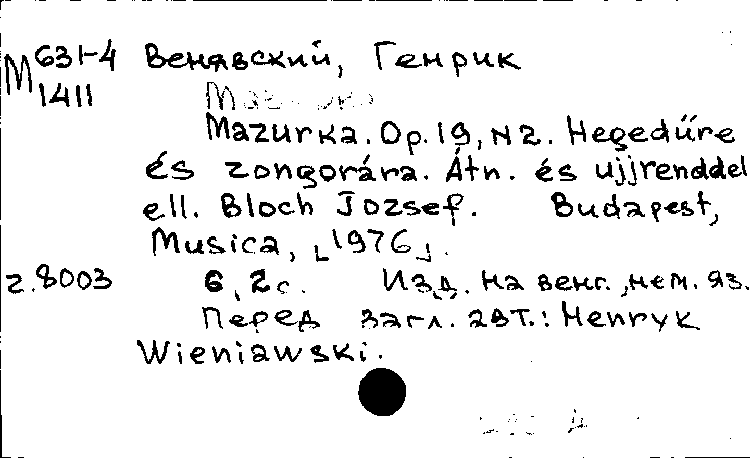 М 631-4 Венявский, Генрик
1411
Mazurka. Op. 19, N 2. Hegedűre
és zongorára. Átn. és ujjrenddel
ell. Bloch Jozsef. Budapest,
Musica, [1976].
z.8003 6, 2 с. Изд. на венг., нем. яз.
Перед загл. авт.: Henryk
Wieniawski.